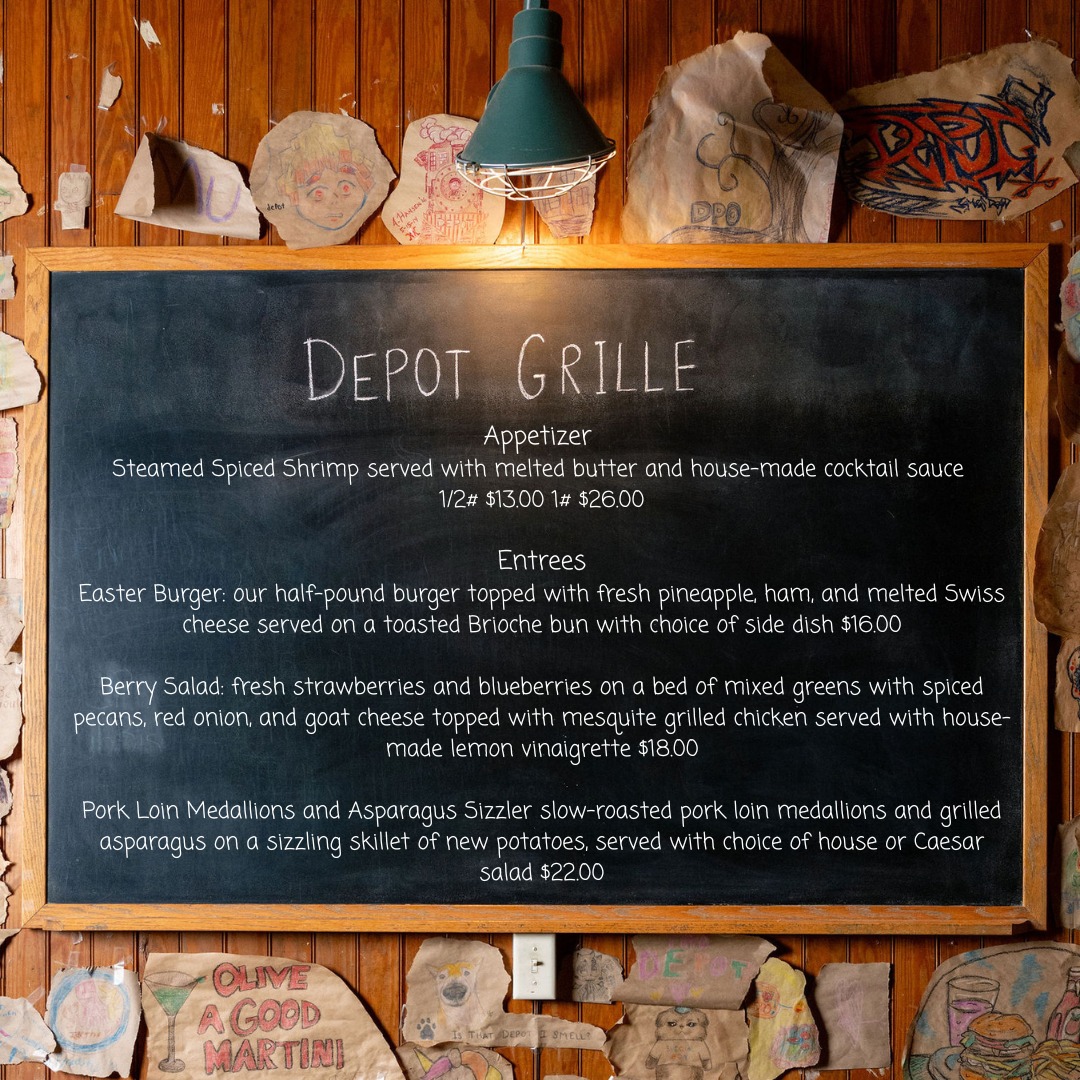 depot
DPO
DEPOT GRILLE
Appetizer
Steamed Spiced Shrimp served with melted butter and house-made cocktail sauce
1/2# $13.00 1# $26.00
Entrees
Easter Burger: our half-pound burger topped with fresh pineapple, ham, and melted Swiss
cheese served on a toasted Brioche bun with choice of side dish $16.00
Berry Salad: fresh strawberries and blueberries on a bed of mixed greens with spiced
pecans, red onion, and goat cheese topped with mesquite grilled chicken served with house-
made lemon vinaigrette $18.00
Pork Loin Medallions and Asparagus Sizzler slow-roasted pork loin medallions and grilled
asparagus on a sizzling skillet of new potatoes, served with choice of house or Caesar
salad $22.00
OLIVE
A GOOD
MARTINI
DEPOT
IS THAT DEPOT I SMELL?